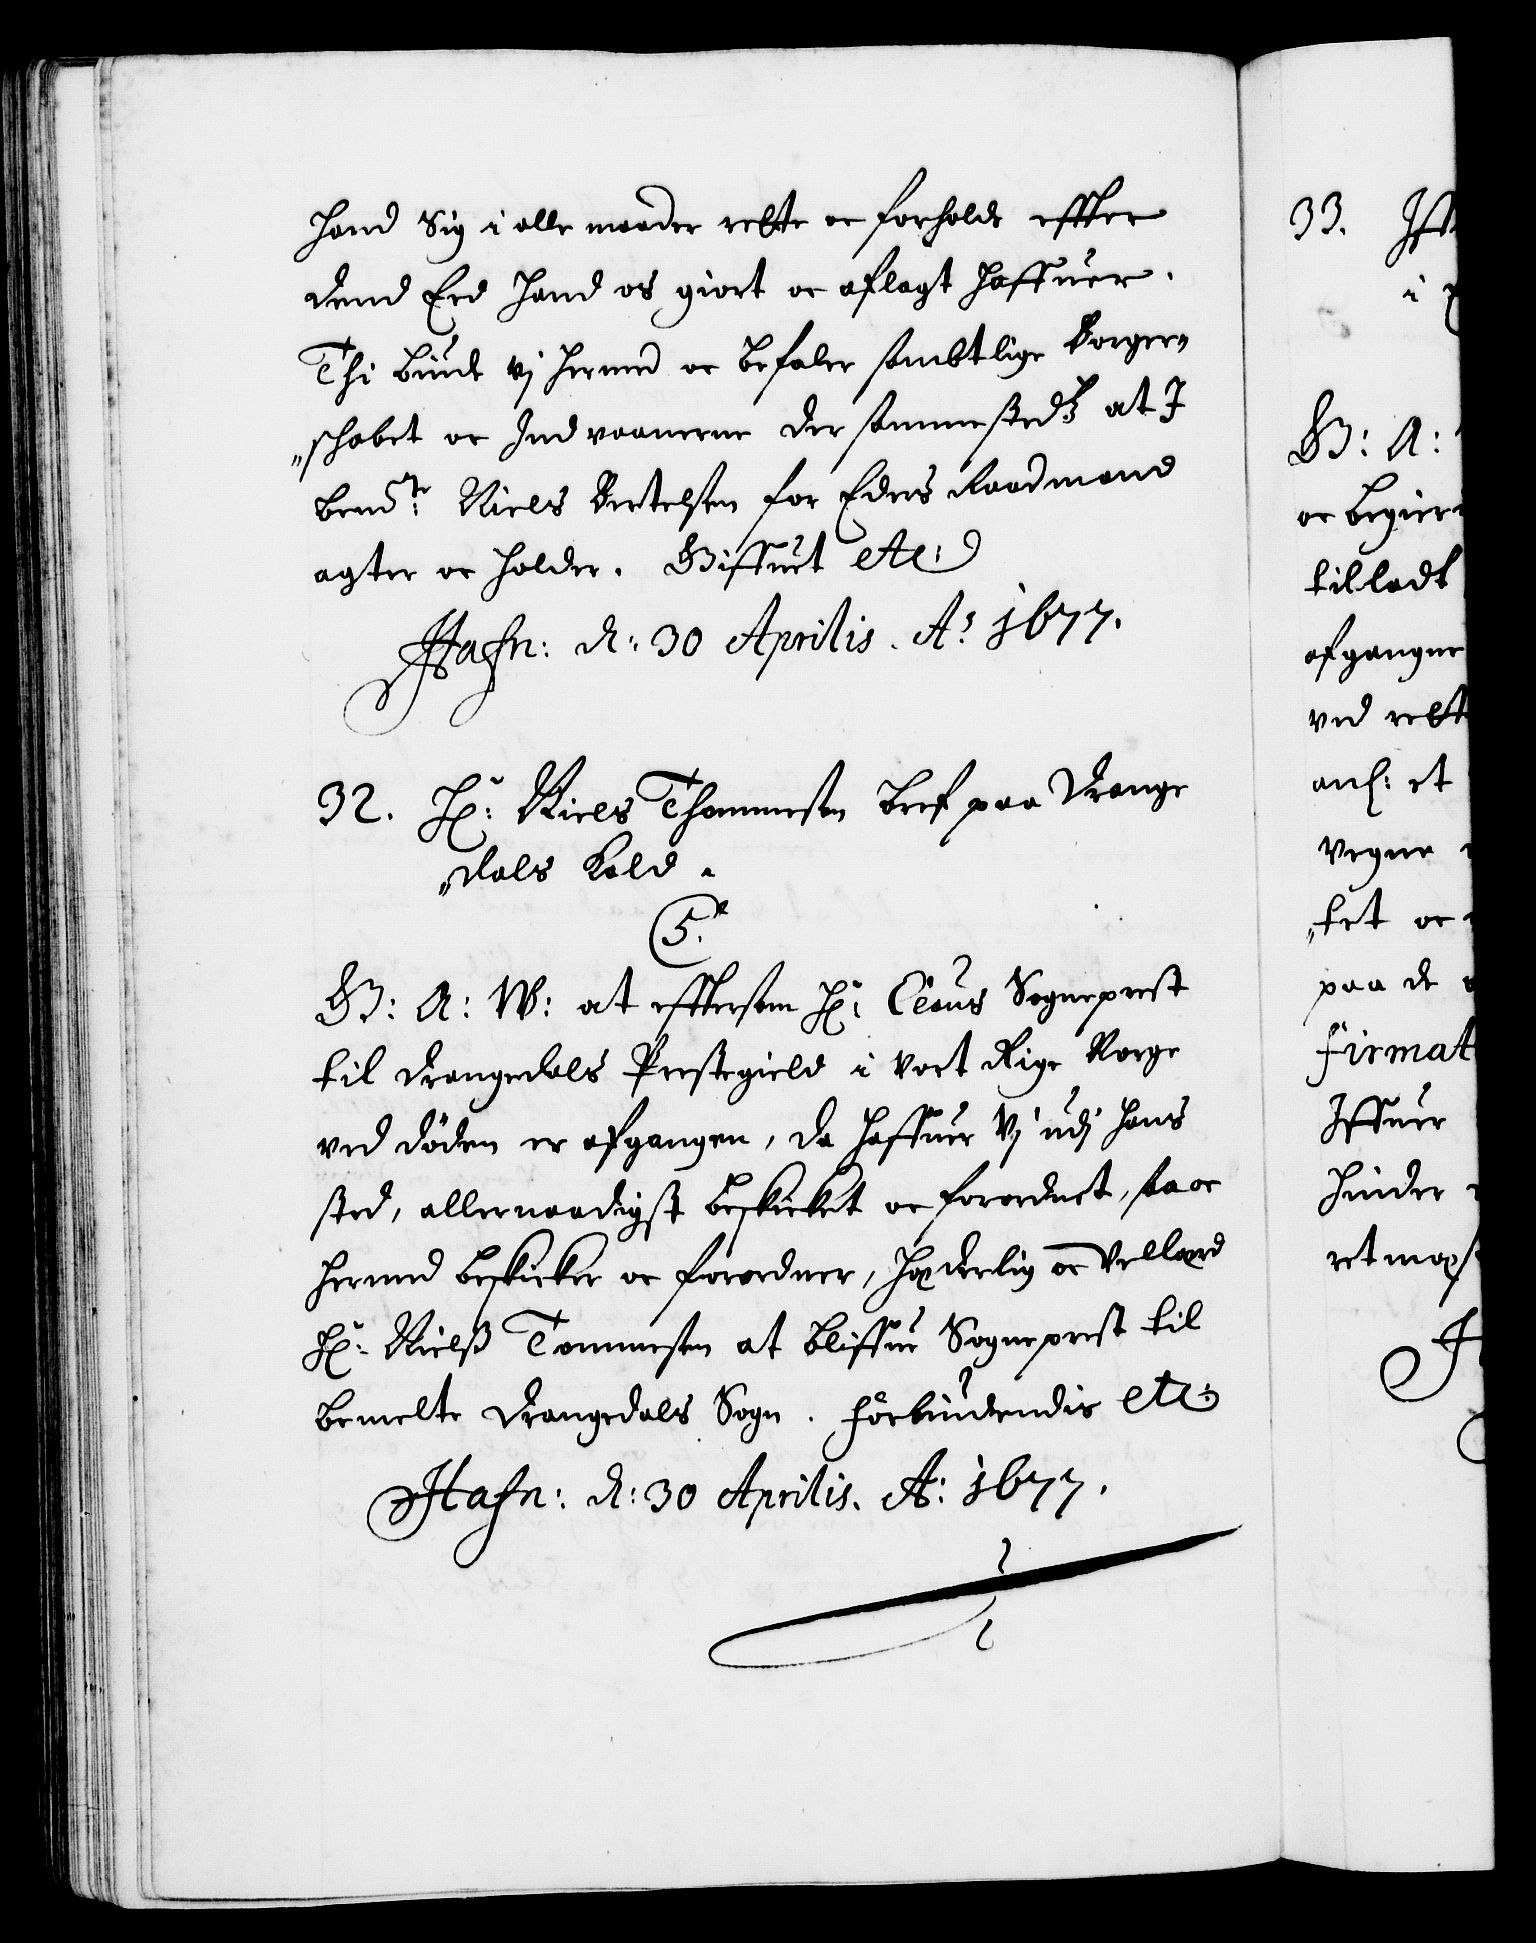 hand Sig i alle maader rette oc forholde effter
dend Eed hand os giort oc aflagt haffuer.
Thi biude Vj hermed oc befaler sambtlige Borger„
„schabet oc Indvaanerne der sammestedß at I
bemte: Niels Bertelsen for Eders Raadmand
agter oc holder. Giffuet etc:
Hafn: d: 30 Aprilis. Ao: 1677.
32. Hr: Niels Thommesen bref paa Drange
„dals Kald.
C5.
G: A: W: at effterson Hr: Claus Sogneprest
til Drangedals Prestegield i Vort Rige Norge
ved döden er afgangen, da haffuer Vj udj hans
sted, allernaadigst beskicket oc forordnet, saa oc
hermed beskicker oc forordner, hæderlig oc Vellærd
Hr: Nielß Tommesen at bliffue Sogneprest til
bemelte Drangedals Sogn. Forbiudendis etc:
Hafn: d: 30 Aprilis. A: 1677.
33.
i
G: A:
oc begier
tilladt
afgangne
ved rette
anl: et
Vegne
„tet oc
paa de
firmat
Iffuer
hinder
retmæs